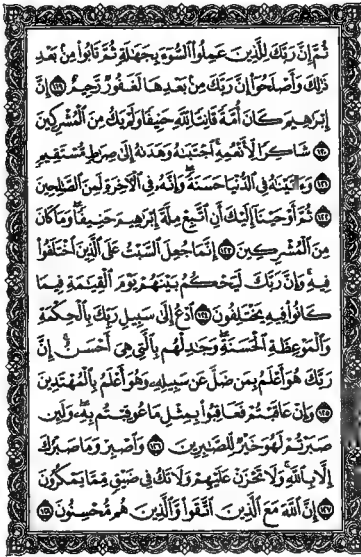 ثُمَّ إِنَّ رَبَّكَ لِلَّذِينَ عَمِلُوا۟ ٱلسُّوٓءَ بِجَهَـٰلَةٍ ثُمَّ تَابُوا۟ مِنۢ بَعْدِ
ذَٰلِكَ وَأَصْلَحُوٓا۟ إِنَّ رَبَّكَ مِنۢ بَعْدِهَا لَغَفُورٌ رَّحِيمٌ ﴿١١٩﴾ إِنَّ
إِبْرَٰهِيمَ كَانَ أُمَّةً قَانِتًا لِّلَّهِ حَنِيفًا وَلَمْ يَكُ مِنَ ٱلْمُشْرِكِينَ
﴿١٢٠﴾ شَاكِرًا لِّأَنْعُمِهِ ۚ ٱجْتَبَىٰهُ وَهَدَىٰهُ إِلَىٰ صِرَٰطٍ مُّسْتَقِيمٍ
﴿١٢١﴾ وَءَاتَيْنَـٰهُ فِى ٱلدُّنْيَا حَسَنَةً ۖ وَإِنَّهُۥ فِى ٱلْـَٔاخِرَةِ لَمِنَ ٱلصَّـٰلِحِينَ
﴿١٢٢﴾ ثُمَّ أَوْحَيْنَآ إِلَيْكَ أَنِ ٱتَّبِعْ مِلَّةَ إِبْرَٰهِيمَ حَنِيفًا ۖ وَمَا كَانَ
مِنَ ٱلْمُشْرِكِينَ ﴿١٢٣﴾ إِنَّمَا جُعِلَ ٱلسَّبْتُ عَلَى ٱلَّذِينَ ٱخْتَلَفُوا۟
فِيهِ ۚ وَإِنَّ رَبَّكَ لَيَحْكُمُ بَيْنَهُمْ يَوْمَ ٱلْقِيَـٰمَةِ فِيمَا
كَانُوا۟ فِيهِ يَخْتَلِفُونَ ﴿١٢٤﴾ ٱدْعُ إِلَىٰ سَبِيلِ رَبِّكَ بِٱلْحِكْمَةِ
وَٱلْمَوْعِظَةِ ٱلْحَسَنَةِ ۖ وَجَـٰدِلْهُم بِٱلَّتِى هِىَ أَحْسَنُ ۚ إِنَّ
رَبَّكَ هُوَ أَعْلَمُ بِمَن ضَلَّ عَن سَبِيلِهِۦ ۖ وَهُوَ أَعْلَمُ بِٱلْمُهْتَدِينَ
﴿١٢٥﴾ وَإِنْ عَاقَبْتُمْ فَعَاقِبُوا۟ بِمِثْلِ مَا عُوقِبْتُم بِهِۦ ۖ وَلَئِن
صَبَرْتُمْ لَهُوَ خَيْرٌ لِّلصَّـٰبِرِينَ ﴿١٢٦﴾ وَٱصْبِرْ وَمَا صَبْرُكَ
إِلَّا بِٱللَّهِ ۚ وَلَا تَحْزَنْ عَلَيْهِمْ وَلَا تَكُ فِى ضَيْقٍ مِّمَّا يَمْكُرُونَ
﴿١٢٧﴾ إِنَّ ٱللَّهَ مَعَ ٱلَّذِينَ ٱتَّقَوا۟ وَّٱلَّذِينَ هُم مُّحْسِنُونَ ﴿١٢٨﴾